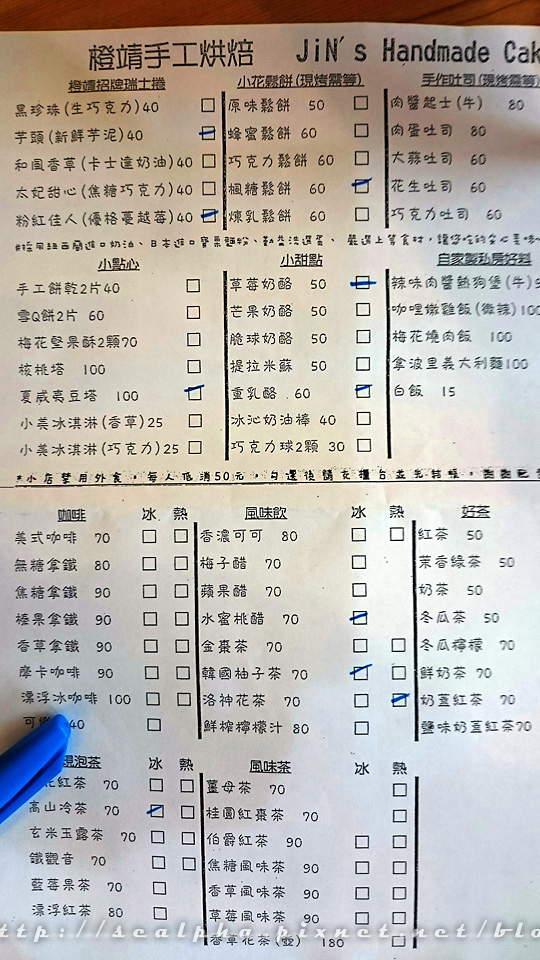 橙靖手工烘焙 JiN's Handmade Cak
橙靖招牌瑞士捲
黑珍珠(生巧克力)40
芋頭(新鮮芋泥)40
和風香草(卡士達奶油)40
太妃甜心(焦糖巧克力)40
粉紅佳人(優格蔓越莓)40
小花鬆餅(現烤需等)
原味鬆餅 50
蜂蜜鬆餅 60
巧克力鬆餅 60
楓糖鬆餅 60
煉乳鬆餅 60
手作吐司(現烤需等)
肉醬起士(牛) 80
肉蛋吐司 80
大蒜吐司 60
花生吐司 60
巧克力吐司 60
小點心
手工餅乾2片40
雪Q餅2片 60
梅花堅果酥2顆70
核桃塔 100
夏威夷豆塔 100
小美冰淇淋(香草)25
小美冰淇淋(巧克力)25
小甜點
草莓奶酪 50
芒果奶酪 50
脆球奶酪 50
提拉米蘇 50
重乳酪 60
冰沁奶油棒 40
巧克力球2顆 30
自家製私房好料
辣味肉醬熱狗堡(牛)
咖哩嫩雞飯(微辣)100
梅花燒肉飯 100
拿波里義大利麵100
白飯 15
*小店禁用外食，每人低消50元，
咖啡 冰 熱
美式咖啡 70
無糖拿鐵 80
焦糖拿鐵 90
榛果拿鐵 90
香草拿鐵 90
摩卡咖啡 90
漂浮冰咖啡 100
可 40
風味飲 冰 熱
香濃可可 80
梅子醋 70
蘋果醋 70
水蜜桃醋 70
金棗茶 70
韓國柚子茶 70
洛神花茶 70
鮮榨檸檬汁 80
好茶
紅茶 50
茉香綠茶 50
奶茶 50
冬瓜茶 50
冬瓜檸檬 70
鮮奶茶 70
奶蓋紅茶 70
鹽味奶蓋紅茶70
現泡茶 冰 熱
花紅茶 70
高山冷茶 70
玄米玉露茶 70
鐵觀音 70
藍莓果茶 70
漂浮紅茶 80
風味茶 冰 熱
薑母茶 70
桂圓紅棗茶 70
伯爵紅茶 90
焦糖風味茶 90
香草風味茶 90
草莓風味茶 90
香草花茶(壺) 180
http://scalpha.pixnet.net/blo